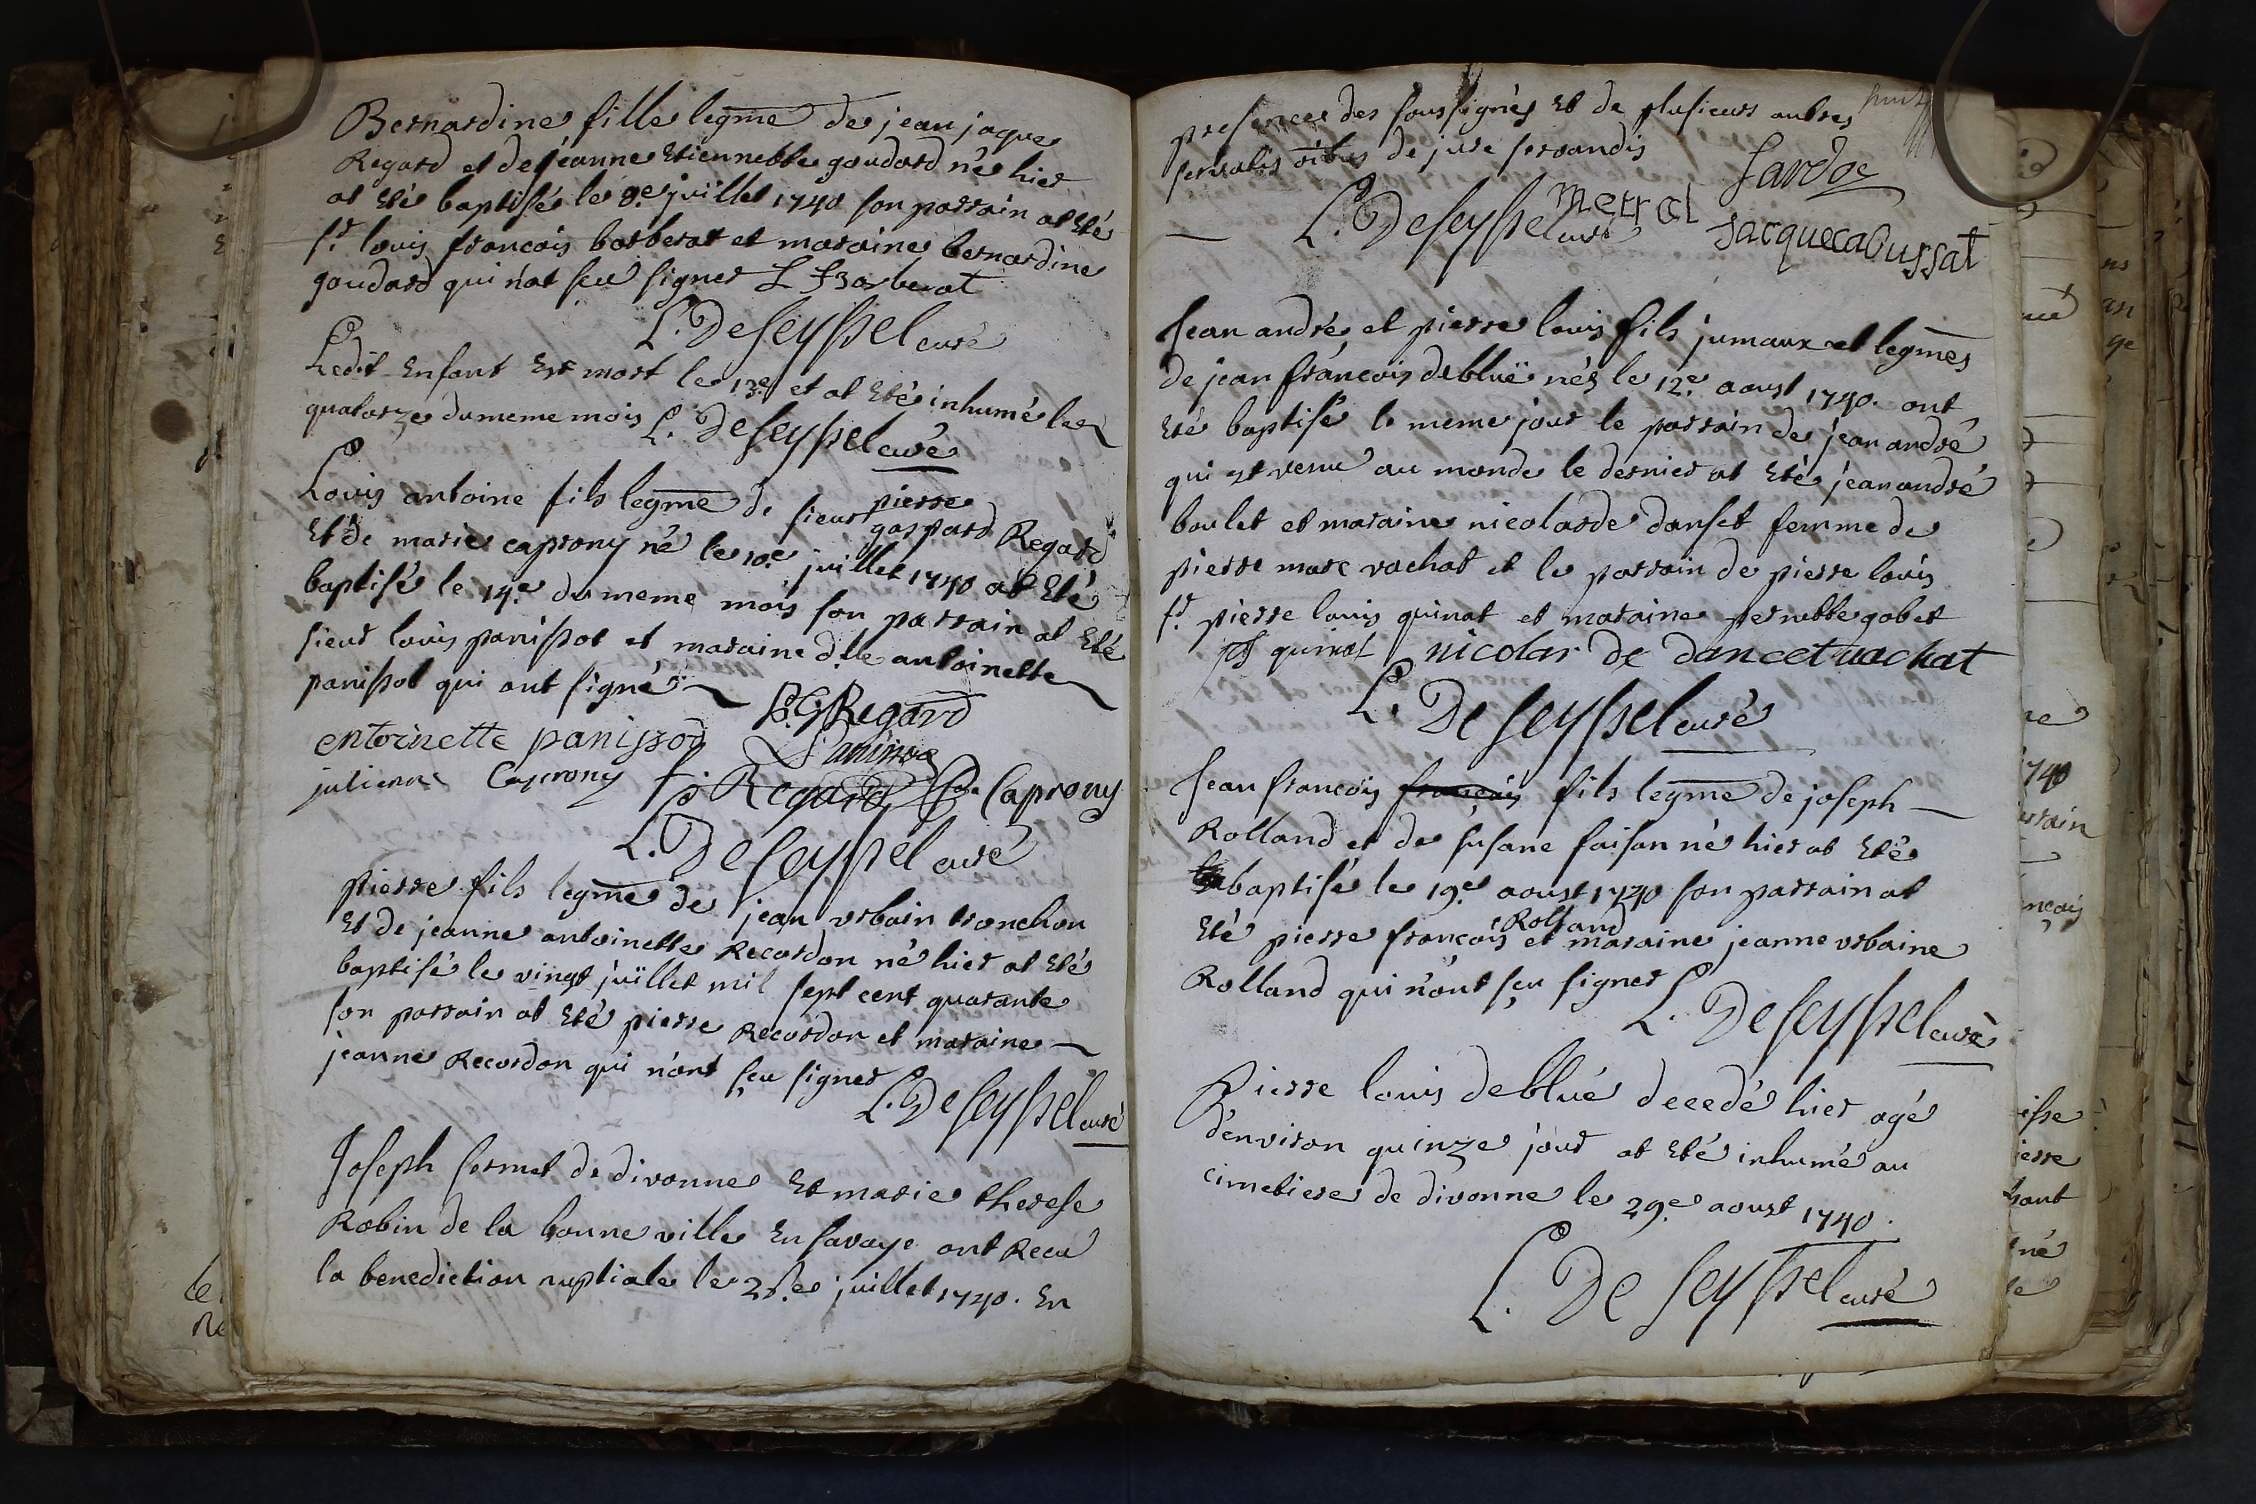 Bernardine fille legme de jean jaque
Regard et de jeanne Etiennette goudard née hier
at Eté baptisée le 9e juillet 1740 son parrain at Eté
sr louis francois barberat et maraine bernardine
goudard qui n'at sçeu signer L f Barberat
L. De seyssel curé
Ledit Enfant Est mort le 13e et at Eté inhumé le
quatorze du meme mois L. De seyssel curé
Louis antoine fils legme de sieur pierre
gaspard Regard
Et de marie caprony né le 10e juillet 1740 at Eté
baptisé le 14e du meme mois son parrain at Eté
sieur louis panissot et maraine dlle antoinette
panissot qui ont signé P. G Regard
entoinette panissod Panissod
julienne Caprony f. Regard Caprony
L. De seyssel curé
pierre fils legme de jean urbain tronchon
Et de jeanne antoinette Recordon né hier at Eté
baptisé le vingt juillet mil sept cent quarante
son parrain at Eté pierre Recordon et maraine
jeanne Recordon qui n'ont sçeu signer
L. De seyssel curé
Joseph sermet de divonne Et marie therese
Robin de la bonne ville En savoye ont Receu
la benediction nuptiale le juillet 1740. En
presence des soussignés Et de plusieurs autres
servatis de jure servandis
L. De seyssel curé metral jardoz
jacquecabussat
Jean andré et pierre louis fils jumaux et legmes
de jean francois debluë nés le 12e aoust 1740. ont
Eté baptisé le meme jour le parrain de jean andré
qui est venu au monde le dernier at Eté jean andré
boulet et maraine nicolarde danset femme de
pierre marc vachat et le parrain de pierre louis
sr pierre louis quinat et maraine pernette gobet
quinat nicolar de dancet vachat
L. De seyssel curé
Jean francois francois fils legme de joseph
Rolland et de susane faisan né hier at Eté
baptisé le 19e aoust 1740 son parrain at
Eté pierre francois Rolland et maraine jeanne urbaine
Rolland qui n'ont sçeu signer
L. De seyssel curé
Pierre louis deblué decedé hier agé
d'environ quinze jour at Eté inhumé au
cimetiere de divonne le 29e aoust 1740.
L. De seyssel curé